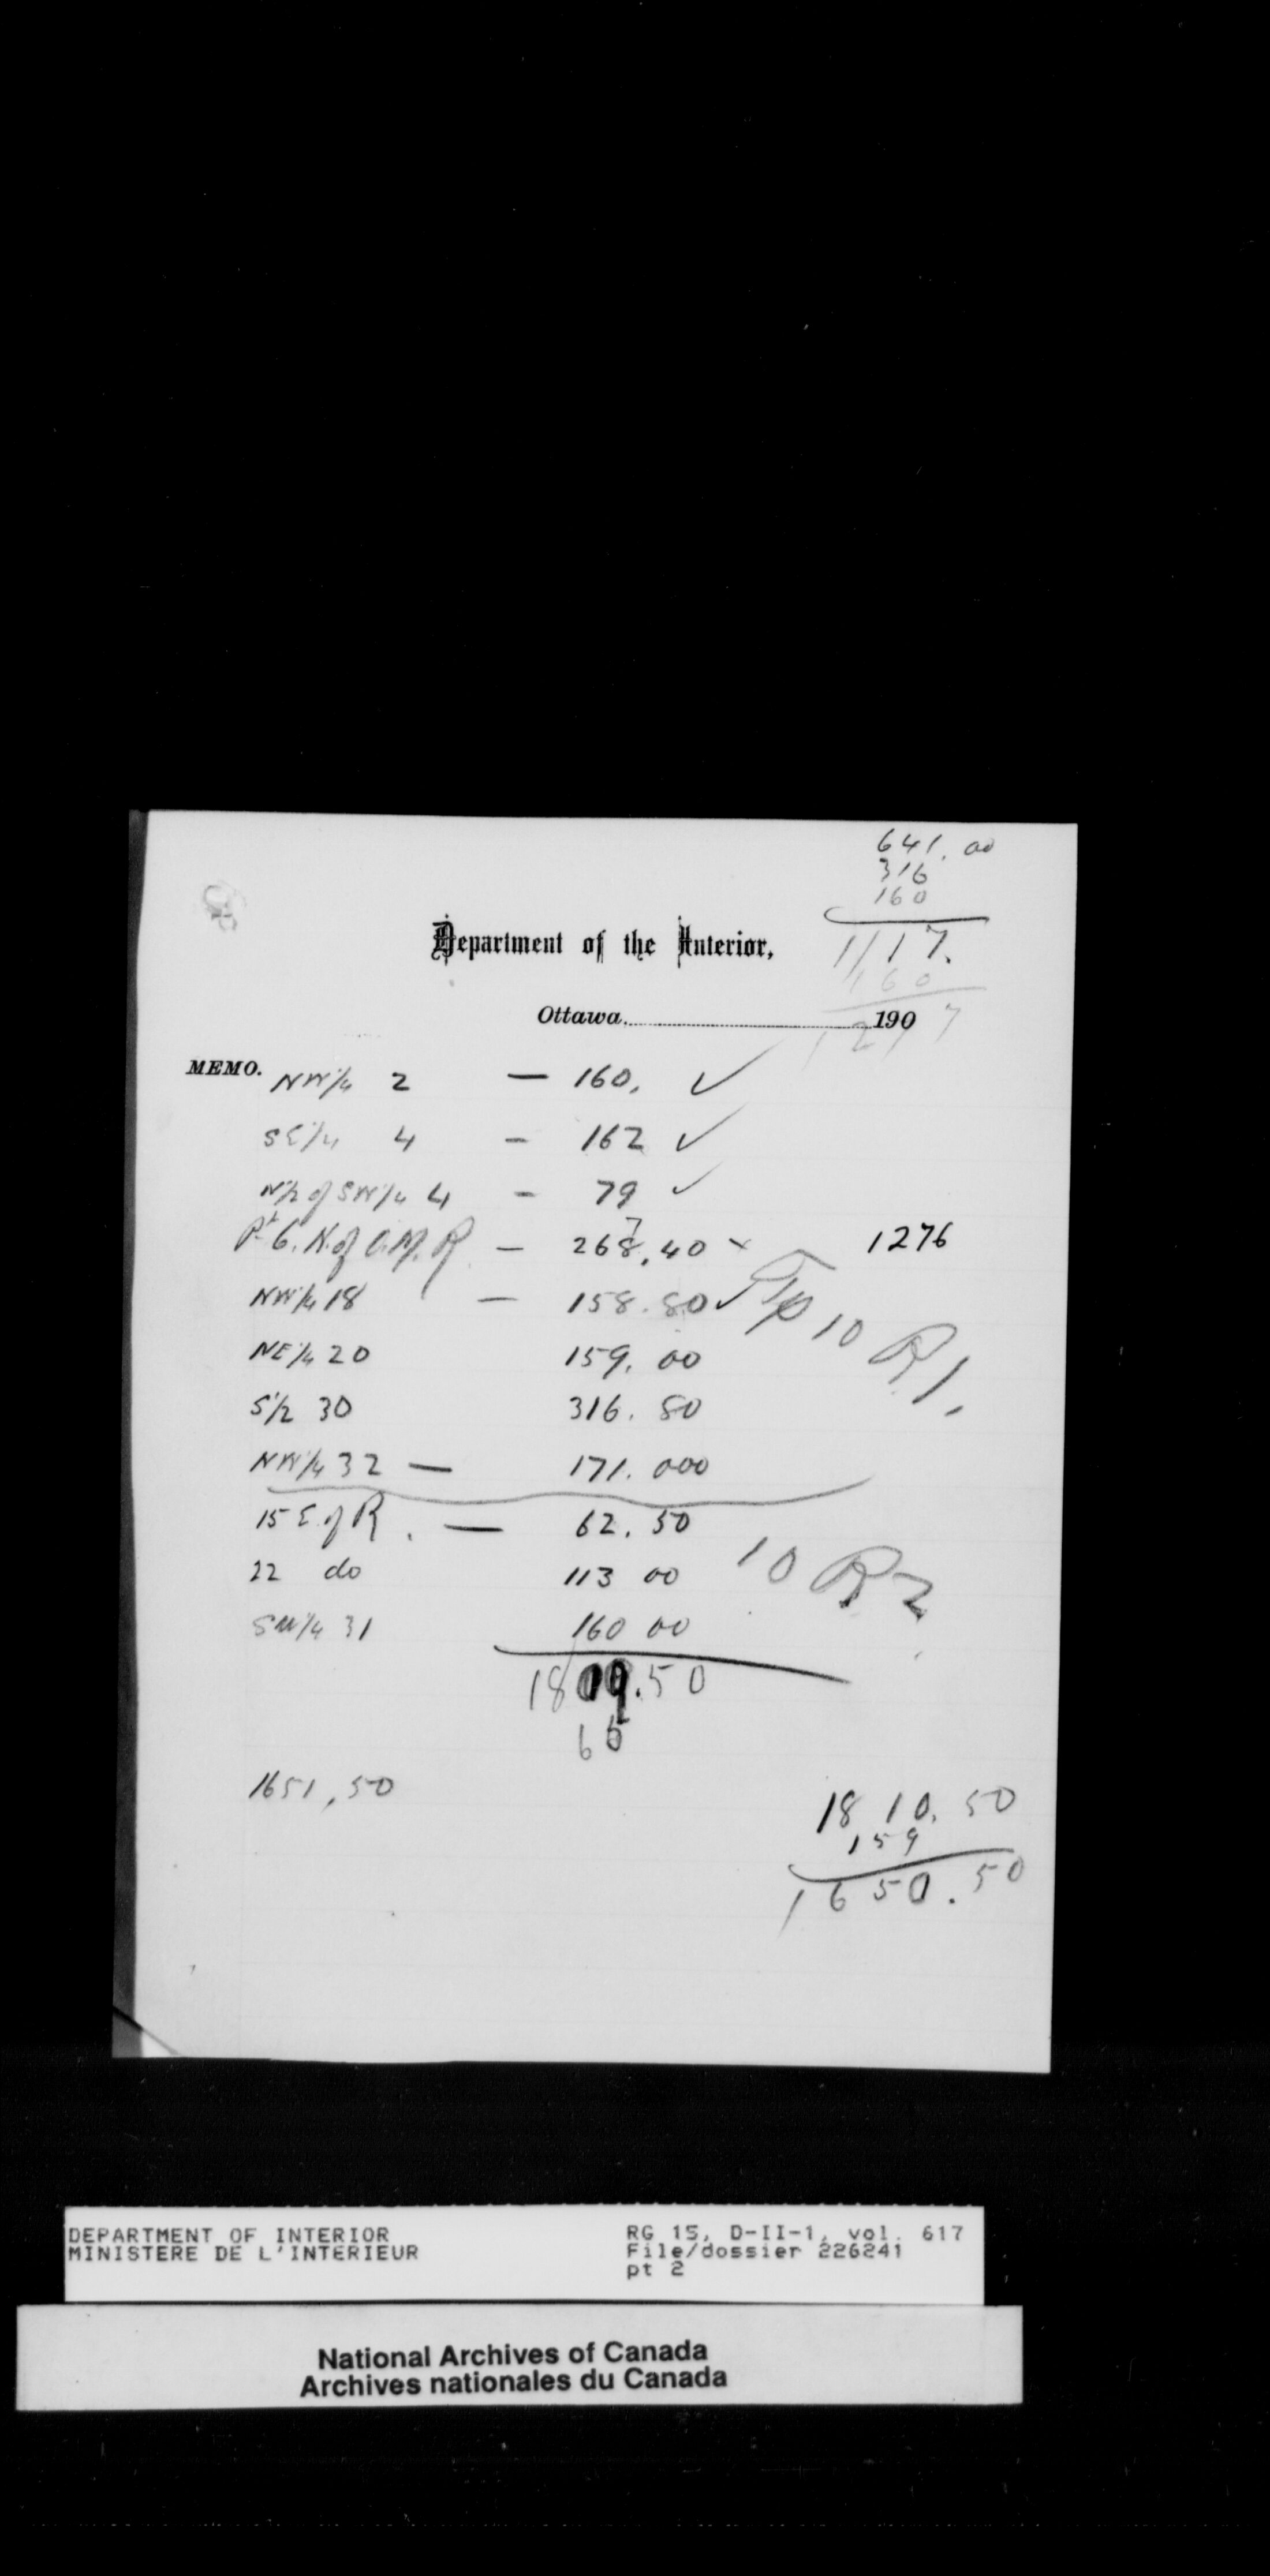 641.00
316
160
1117.
160
1277
Department of the Interior,
Ottawa, 190
MEMO.
NW¼ 2 — 160. ✓
SE¼ 4 — 162 ✓
N½ of SW¼ 4 — 79 ✓
Pt 6. N. of A.M.R. — 268.40 x
7
1276
NW¼ 18 — 158.80 ✓
Tp 10 R 1.
NE¼ 20 159.00
S½ 30 316.80
NW¼ 32 — 171.000
15 E. of R. — 62.50
22 do 113 00
10 R 2
SW¼ 31 160 00
1809.50
1651,50
1810.50
159
1650.50
DEPARTMENT OF INTERIOR
MINISTERE DE L'INTERIEUR
RG 15, D-II-1, vol. 617
File/dossier 226241
pt 2
National Archives of Canada
Archives nationales du Canada